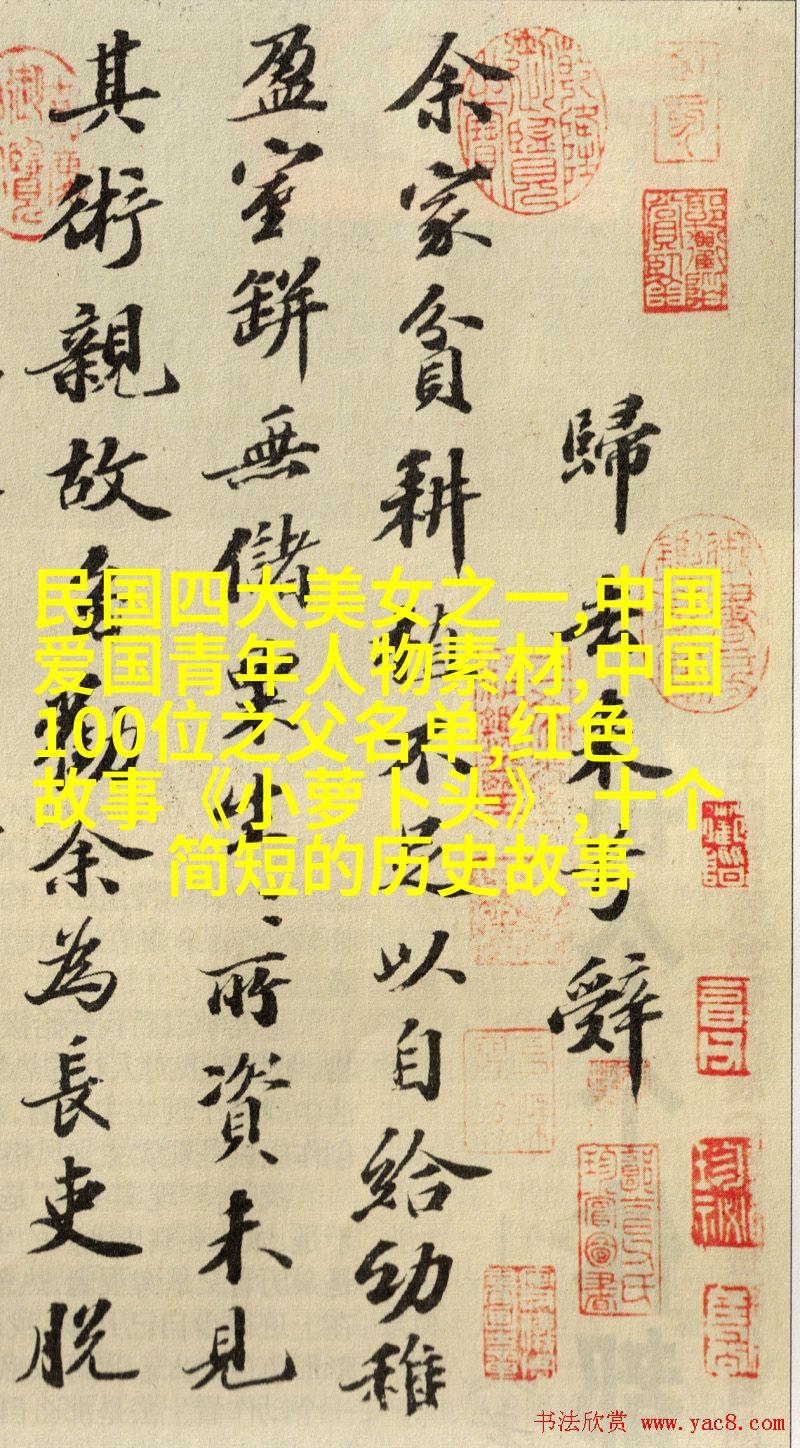 歸去来兮辭
余家貧耕植不足以自給幼稚
盈室缾無儲粟生〻所資未見
其術親故多勸余為長吏脫
民国四大美女之一,中国
爱国青年人物素材,中国
100位之父名单,红色
故事《小萝卜头》,十个
简短的历史故事
书法欣赏 www.yac8.com